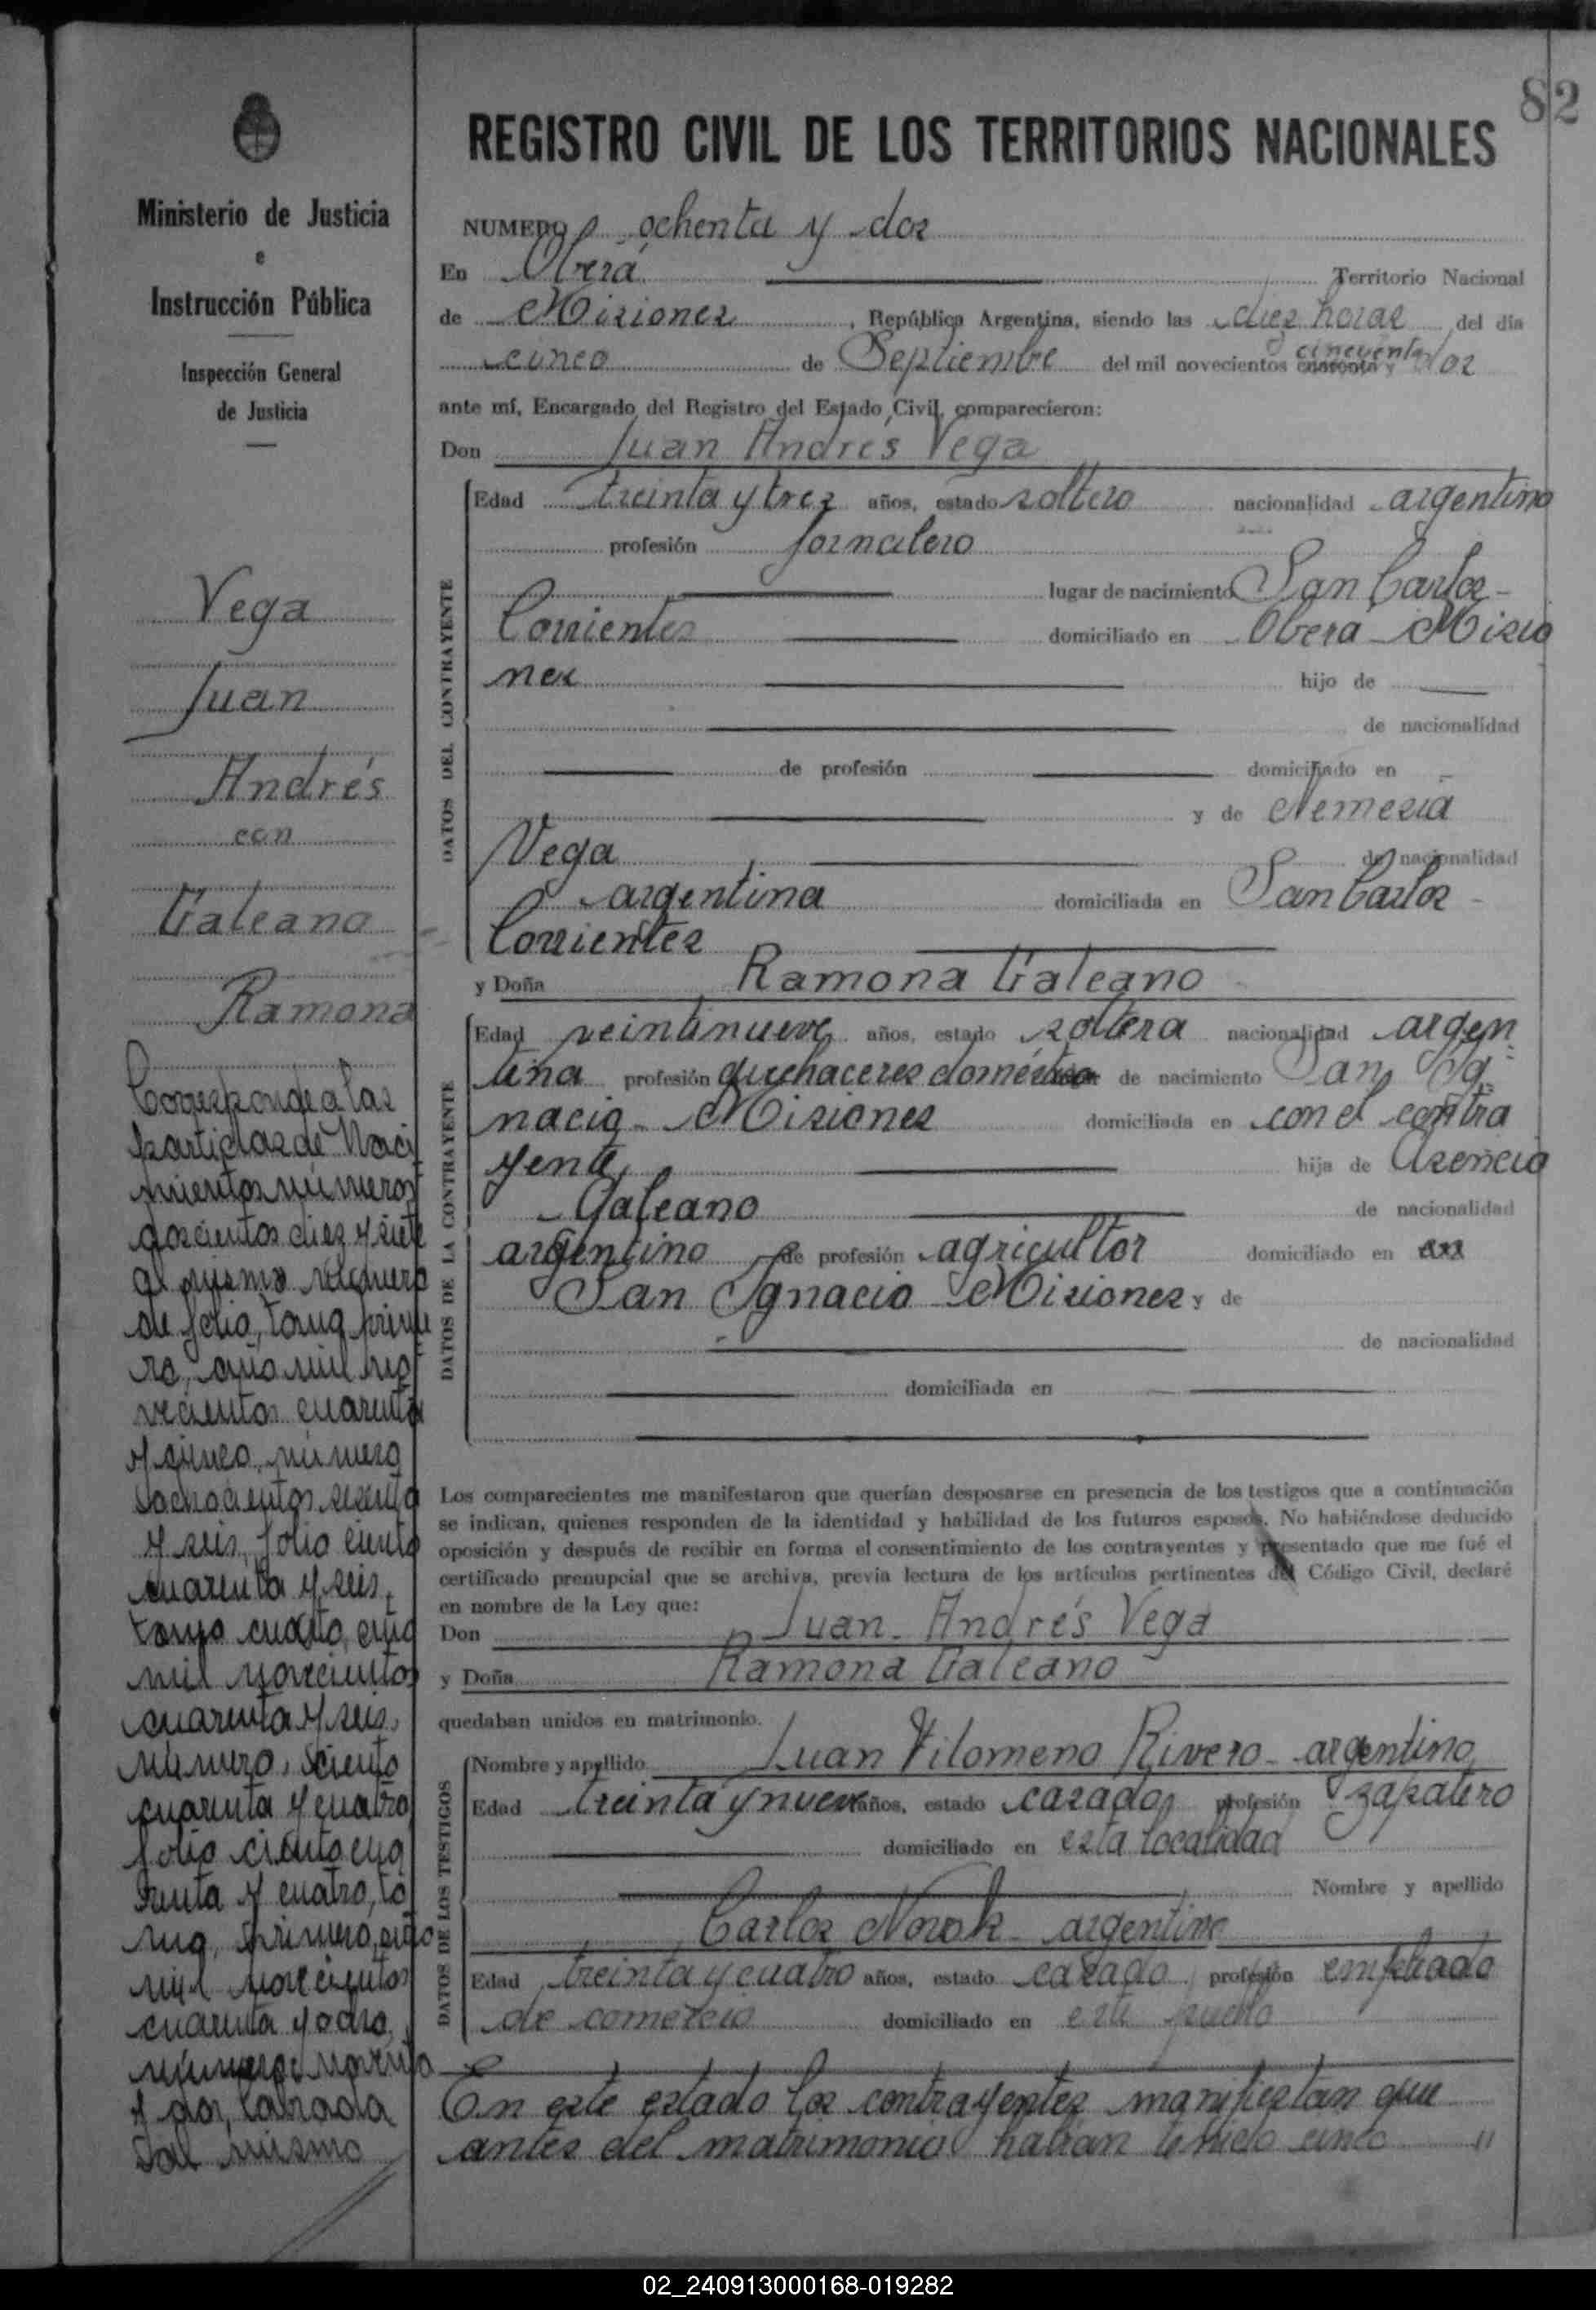 82
REGISTRO CIVIL DE LOS TERRITORIOS NACIONALES
Ministerio de Justicia
e
Instrucción Pública
Inspección General
de Justicia
Vega
Juan
Andrés
con
Galeano
Ramona
Corresponde a las
partidas de Naci
mientos números
doscientos diez y siete
al mismo número
de folio, tomo prime
ro, año mil no
vecientos cuarenta
y cinco, número
ochocientos sesenta
y seis, folio ciento
cuarenta y seis,
tomo cuarto, año
mil novecientos
cuarenta y seis,
número, ciento
cuarenta y cuatro,
folio ciento cua
renta y cuatro, to
mo, primero, año
mil novecientos
cuarenta y ocho,
número noventa
y dos, labrada
al mismo
NUMERO ochenta y dos
En Oberá Territorio Nacional
de Misiones, República Argentina, siendo las diez horas del día
cinco de Septiembre del mil novecientos cuarenta y cincuenta dos
ante mí, Encargado del Registro del Estado Civil, comparecieron:
Don Juan Andrés Vega
DATOS DEL CONTRAYENTE
Edad treinta y tres años, estado soltero nacionalidad argentino
profesión jornalero
lugar de nacimiento San Carlos -
Corrientes domiciliado en Oberá - Misio
nes hijo de
de nacionalidad
de profesión domiciliado en
y de Nemesia
Vega de nacionalidad
argentina domiciliada en San Carlos -
Corrientes
y Doña Ramona Galeano
DATOS DE LA CONTRAYENTE
Edad veintinueve años, estado soltera nacionalidad argen
tina profesión quehaceres domésticos de nacimiento San Ig
nacio - Misiones domiciliada en con el contra
yente, hija de Asencio
Galeano de nacionalidad
argentino de profesión agricultor domiciliado en
San Ignacio Misiones y de
de nacionalidad
domiciliada en
Los comparecientes me manifestaron que querían desposarse en presencia de los testigos que a continuación
se indican, quienes responden de la identidad y habilidad de los futuros esposos. No habiéndose deducido
oposición y después de recibir en forma el consentimiento de los contrayentes y presentado que me fué el
certificado prenupcial que se archiva, previa lectura de los artículos pertinentes del Código Civil, declaré
en nombre de la Ley que:
Don Juan Andrés Vega
y Doña Ramona Galeano
quedaban unidos en matrimonio.
DATOS DE LOS TESTIGOS
Nombre y apellido Juan Filomeno Rivero - argentino
Edad treinta y nueve años, estado casado profesión zapatero
domiciliado en esta localidad
Nombre y apellido
Carlos Novak - argentino
Edad treinta y cuatro años, estado casado profesión empleado
de comercio domiciliado en este pueblo
En este estado los contrayentes manifiestan que
antes del matrimonio habían tenido cinco "
02_240913000168-019282